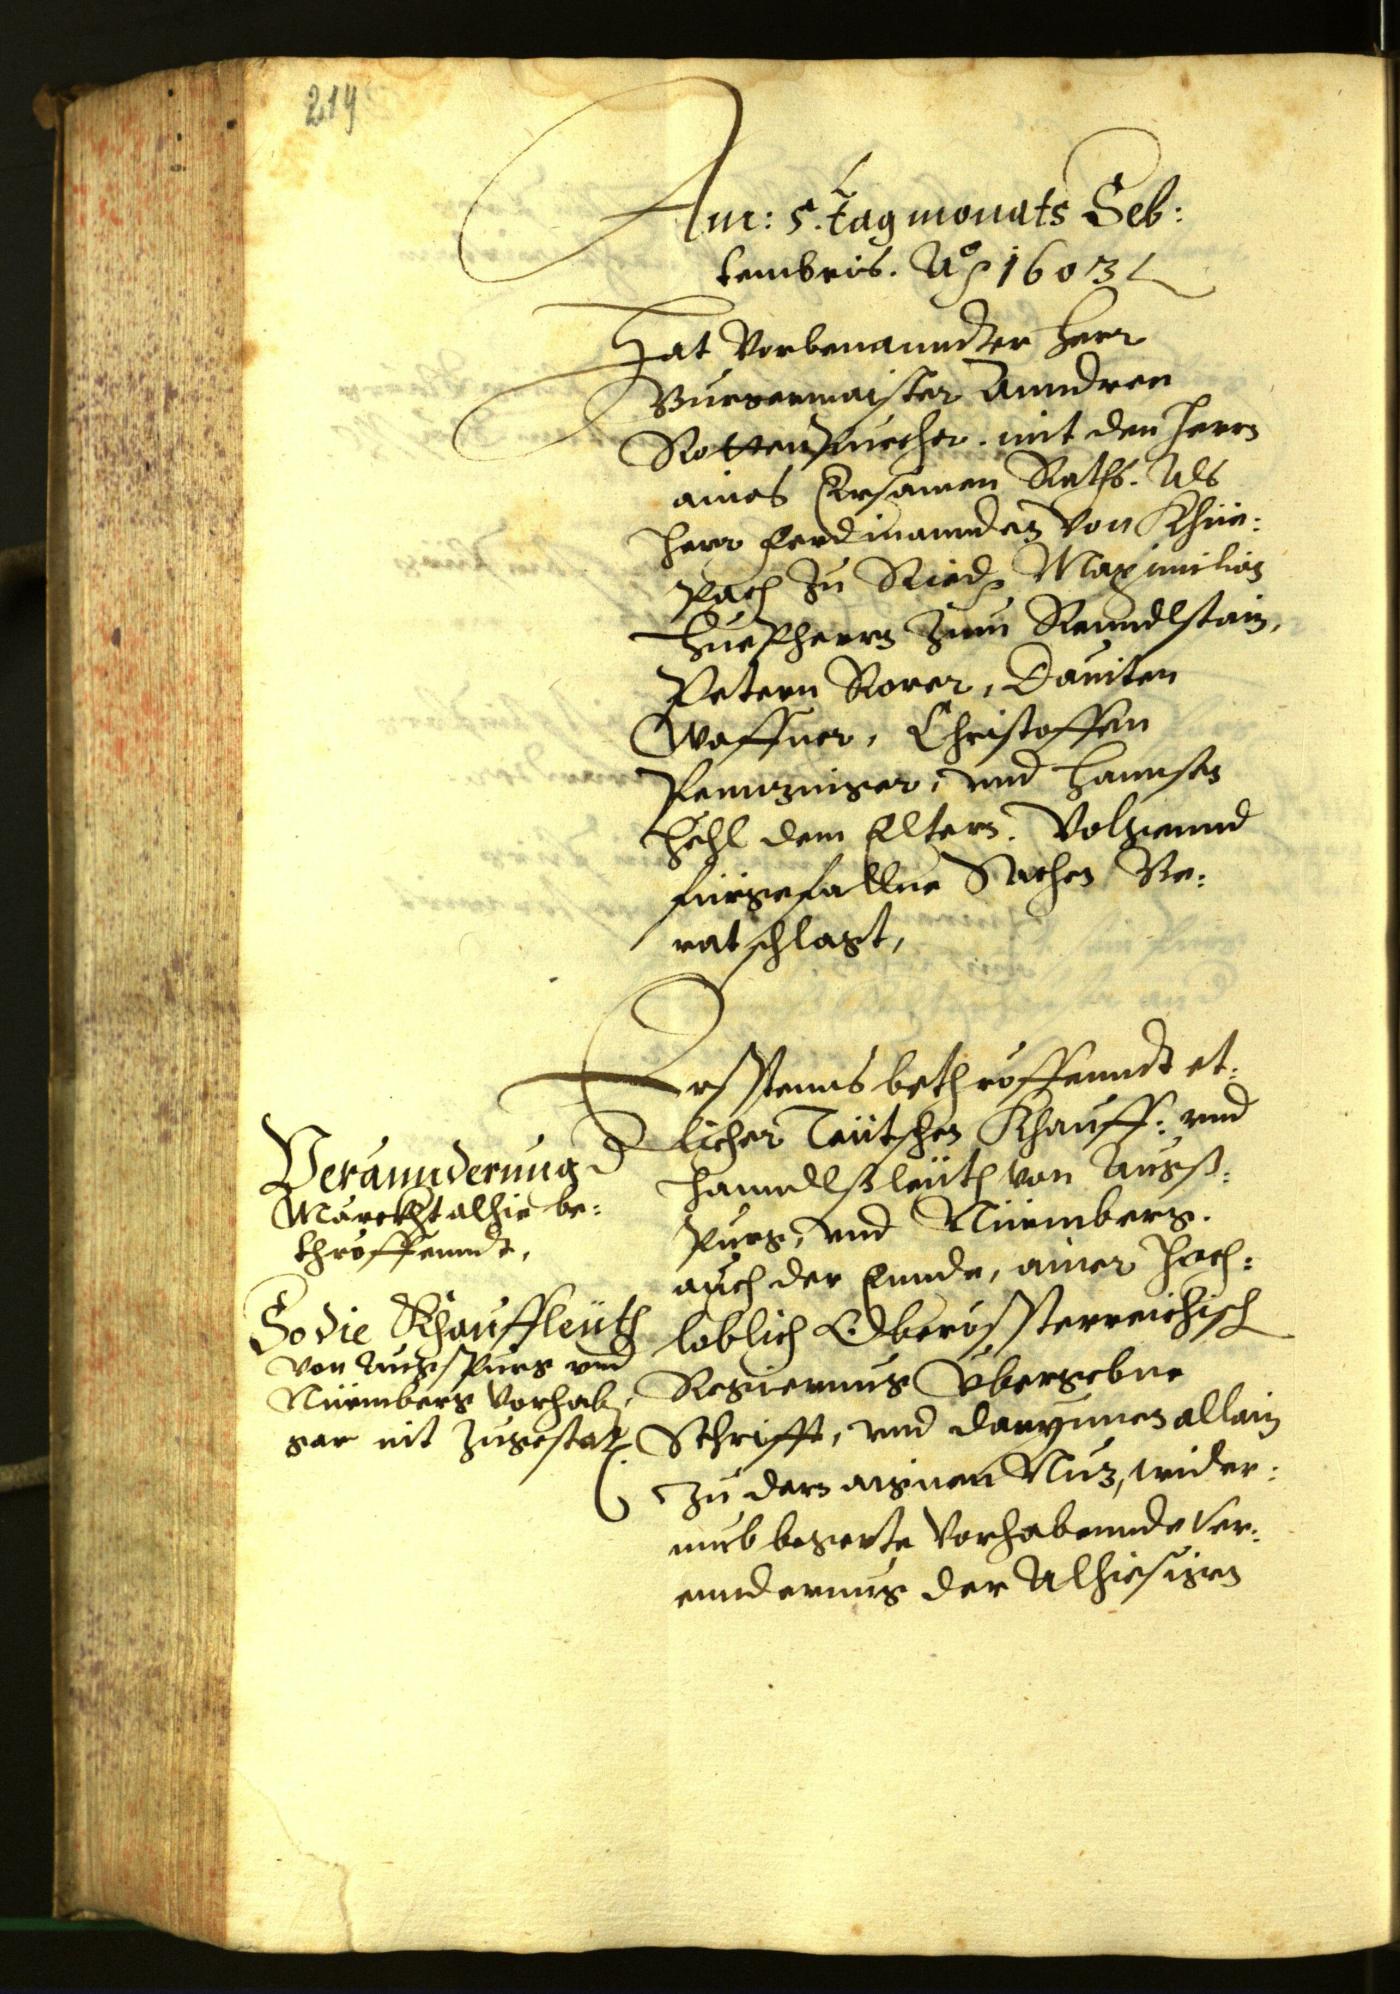 219
Am: 5. tag monats Seb:
tembris. Aõ 1603
Hat Vorbenanndter Herr
Burgermaister Anndree
Rottenpuecher. mit den Herrn
aines Ersamen Raths. Als
Herr Ferdinannden von Khüe:
pach zu Ried, Maximilian
Huepherrn zum Renndlstain,
Petern Rorer, Daviten
Waffner, Christoffen
Penizniger, vnd Hannsen
Hehl dem Eltern. Volgennd
fürgefallne Sachen Be:
ratschlagt,
Erstens bethröffenndt et:
licher Teütschen Khauff: vnd
Hanndlßleüth von Augß:
purg, vnd Nürmberg.
auch der Ennde, ainer Hoch:
loblich Oberösterreichisch
Regierung Übergebne
Schrifft, vnd darynnen allain
zu dern aignen Nuz, wider:
umb begerte Vorhabennde Ver:
enderung der Alhiesigen
Veränderung d
Märckht alhie be:
thröffenndt,
So die Khauffleüth
von Augspurg vnd
Nürmberg Vorhab,
gar nit Zugestat